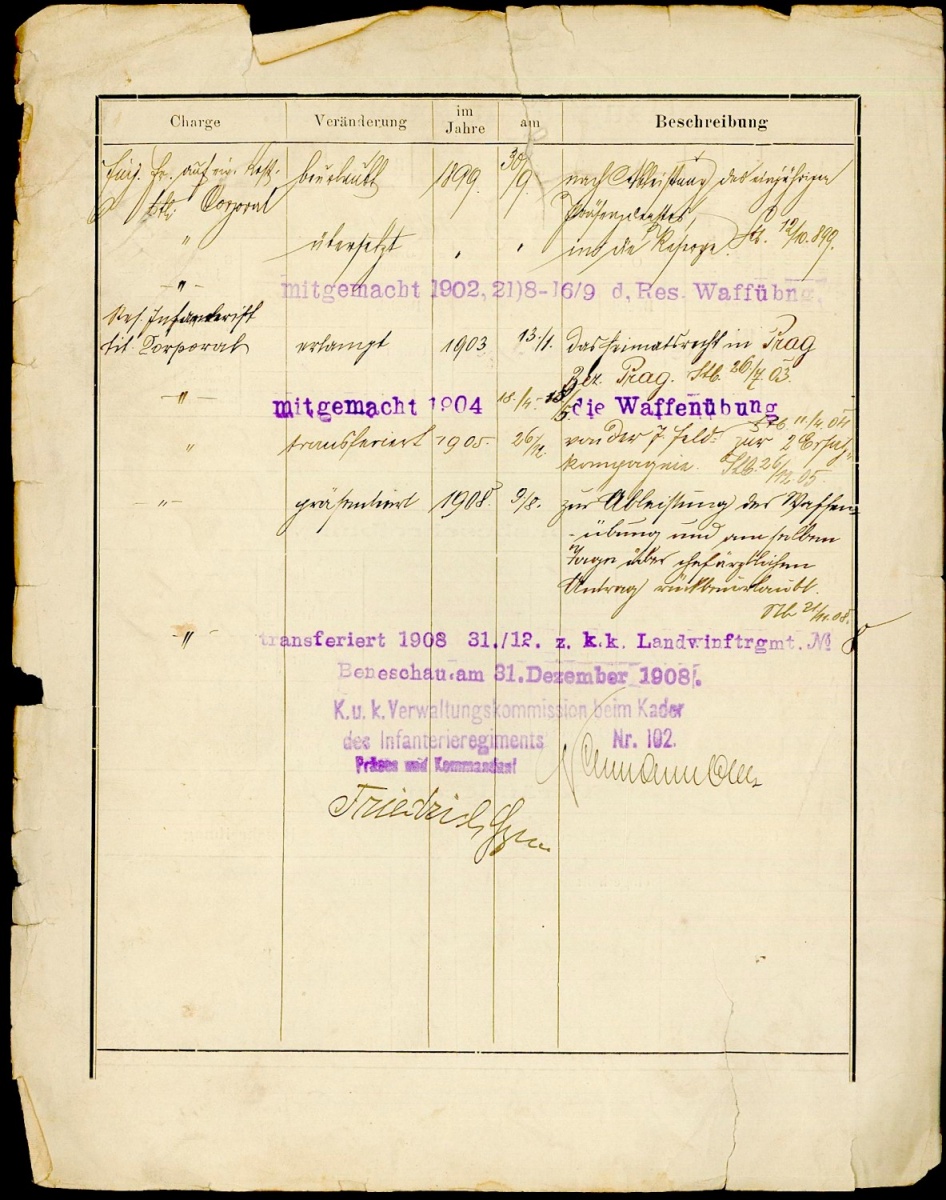 Charge Veränderung im Jahre am Beschreibung
Einj. Fr. auf eig. Kost. beurlaubt 1899. 30/9. nach Ableistung des einjährigen
tit. Corporal Präsenzdienstes
" übersetzt " " in die Reserve. 12/10.899.
" mitgemacht 1902, 21)8-16/9 d, Res. Waffübng.
Res. Infanterist
tit. Corporal erlangt 1903 13./1. das Heimatsrecht in Prag
Bez. Prag. Stb. 26/7 03.
" mitgemacht 1904 18./4.- 15/5 die Waffenübung
Stb. 11/4. 04
" transferiert 1905. 26/12. von der 7. Feld- zur 2 Ersatz-
kompagnie. Stb. 26/12 05.
" präsentiert 1908. 9/8. zur Ableistung der Waffen-
-übung und am selben
Tage über chefärztlichen
Antrag rückbeurlaubt.
Stb 08.
" transferiert 1908 31./12. z. k.k. Landwinftrgmt. № 8
Beneschau am 31. Dezember 1908.
K. u. k. Verwaltungskommission beim Kader
des Infanterieregiments Nr. 102.
Präses und Kommandant
Friedrich